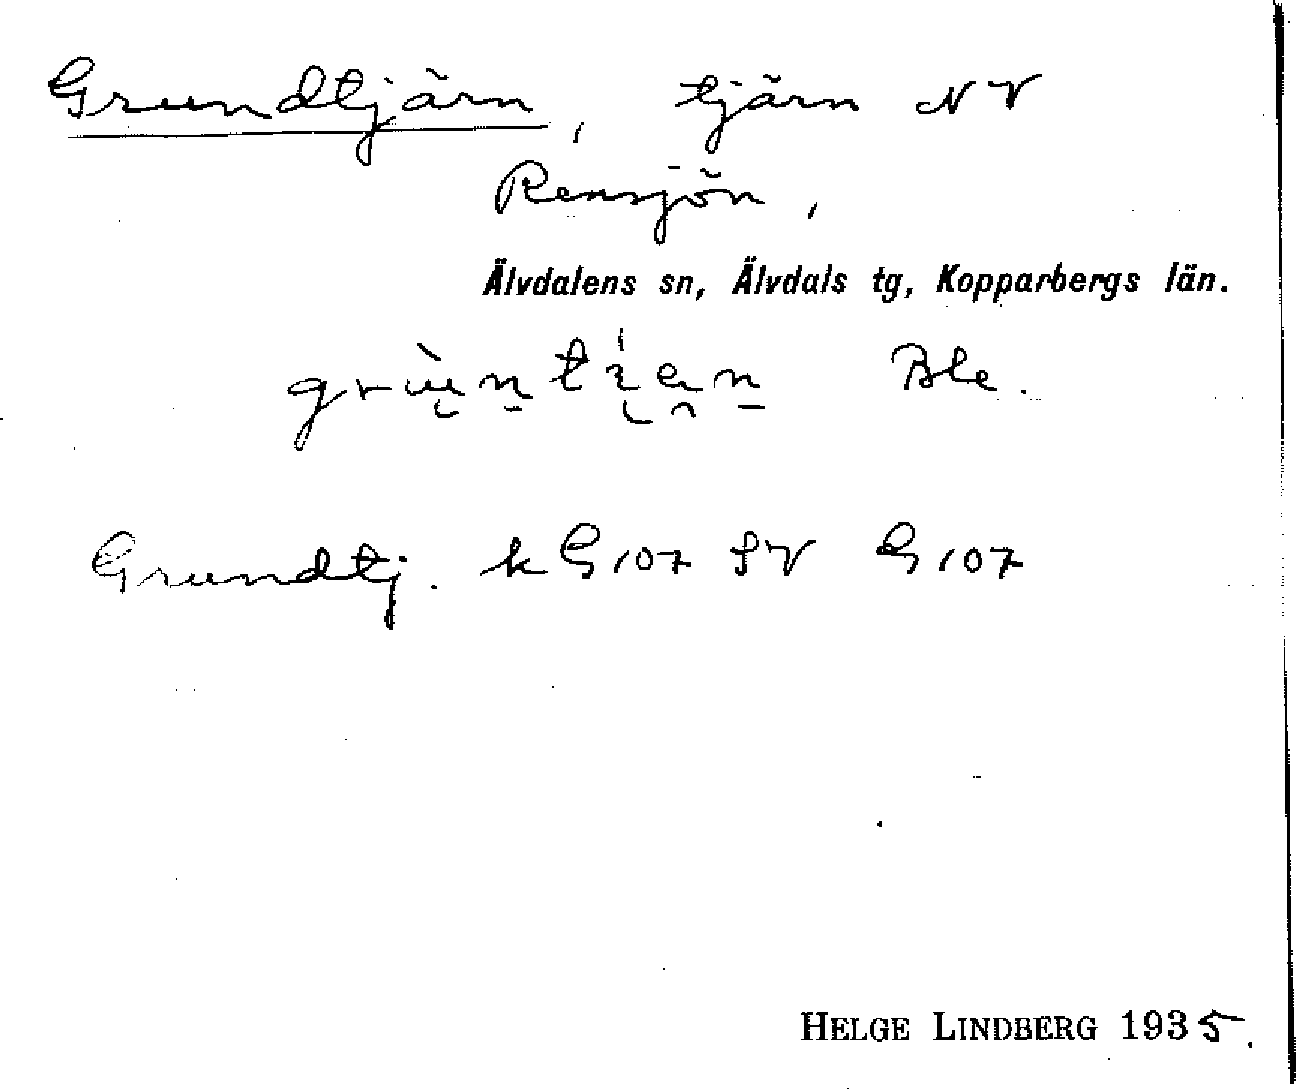 Grundtjärn, tjärn NV
Rensjön,
Älvdalens sn, Älvdals tg, Kopparbergs län.
Ble.
Grundtj. k G107 SV G107
HELGE LINDBERG 1935.